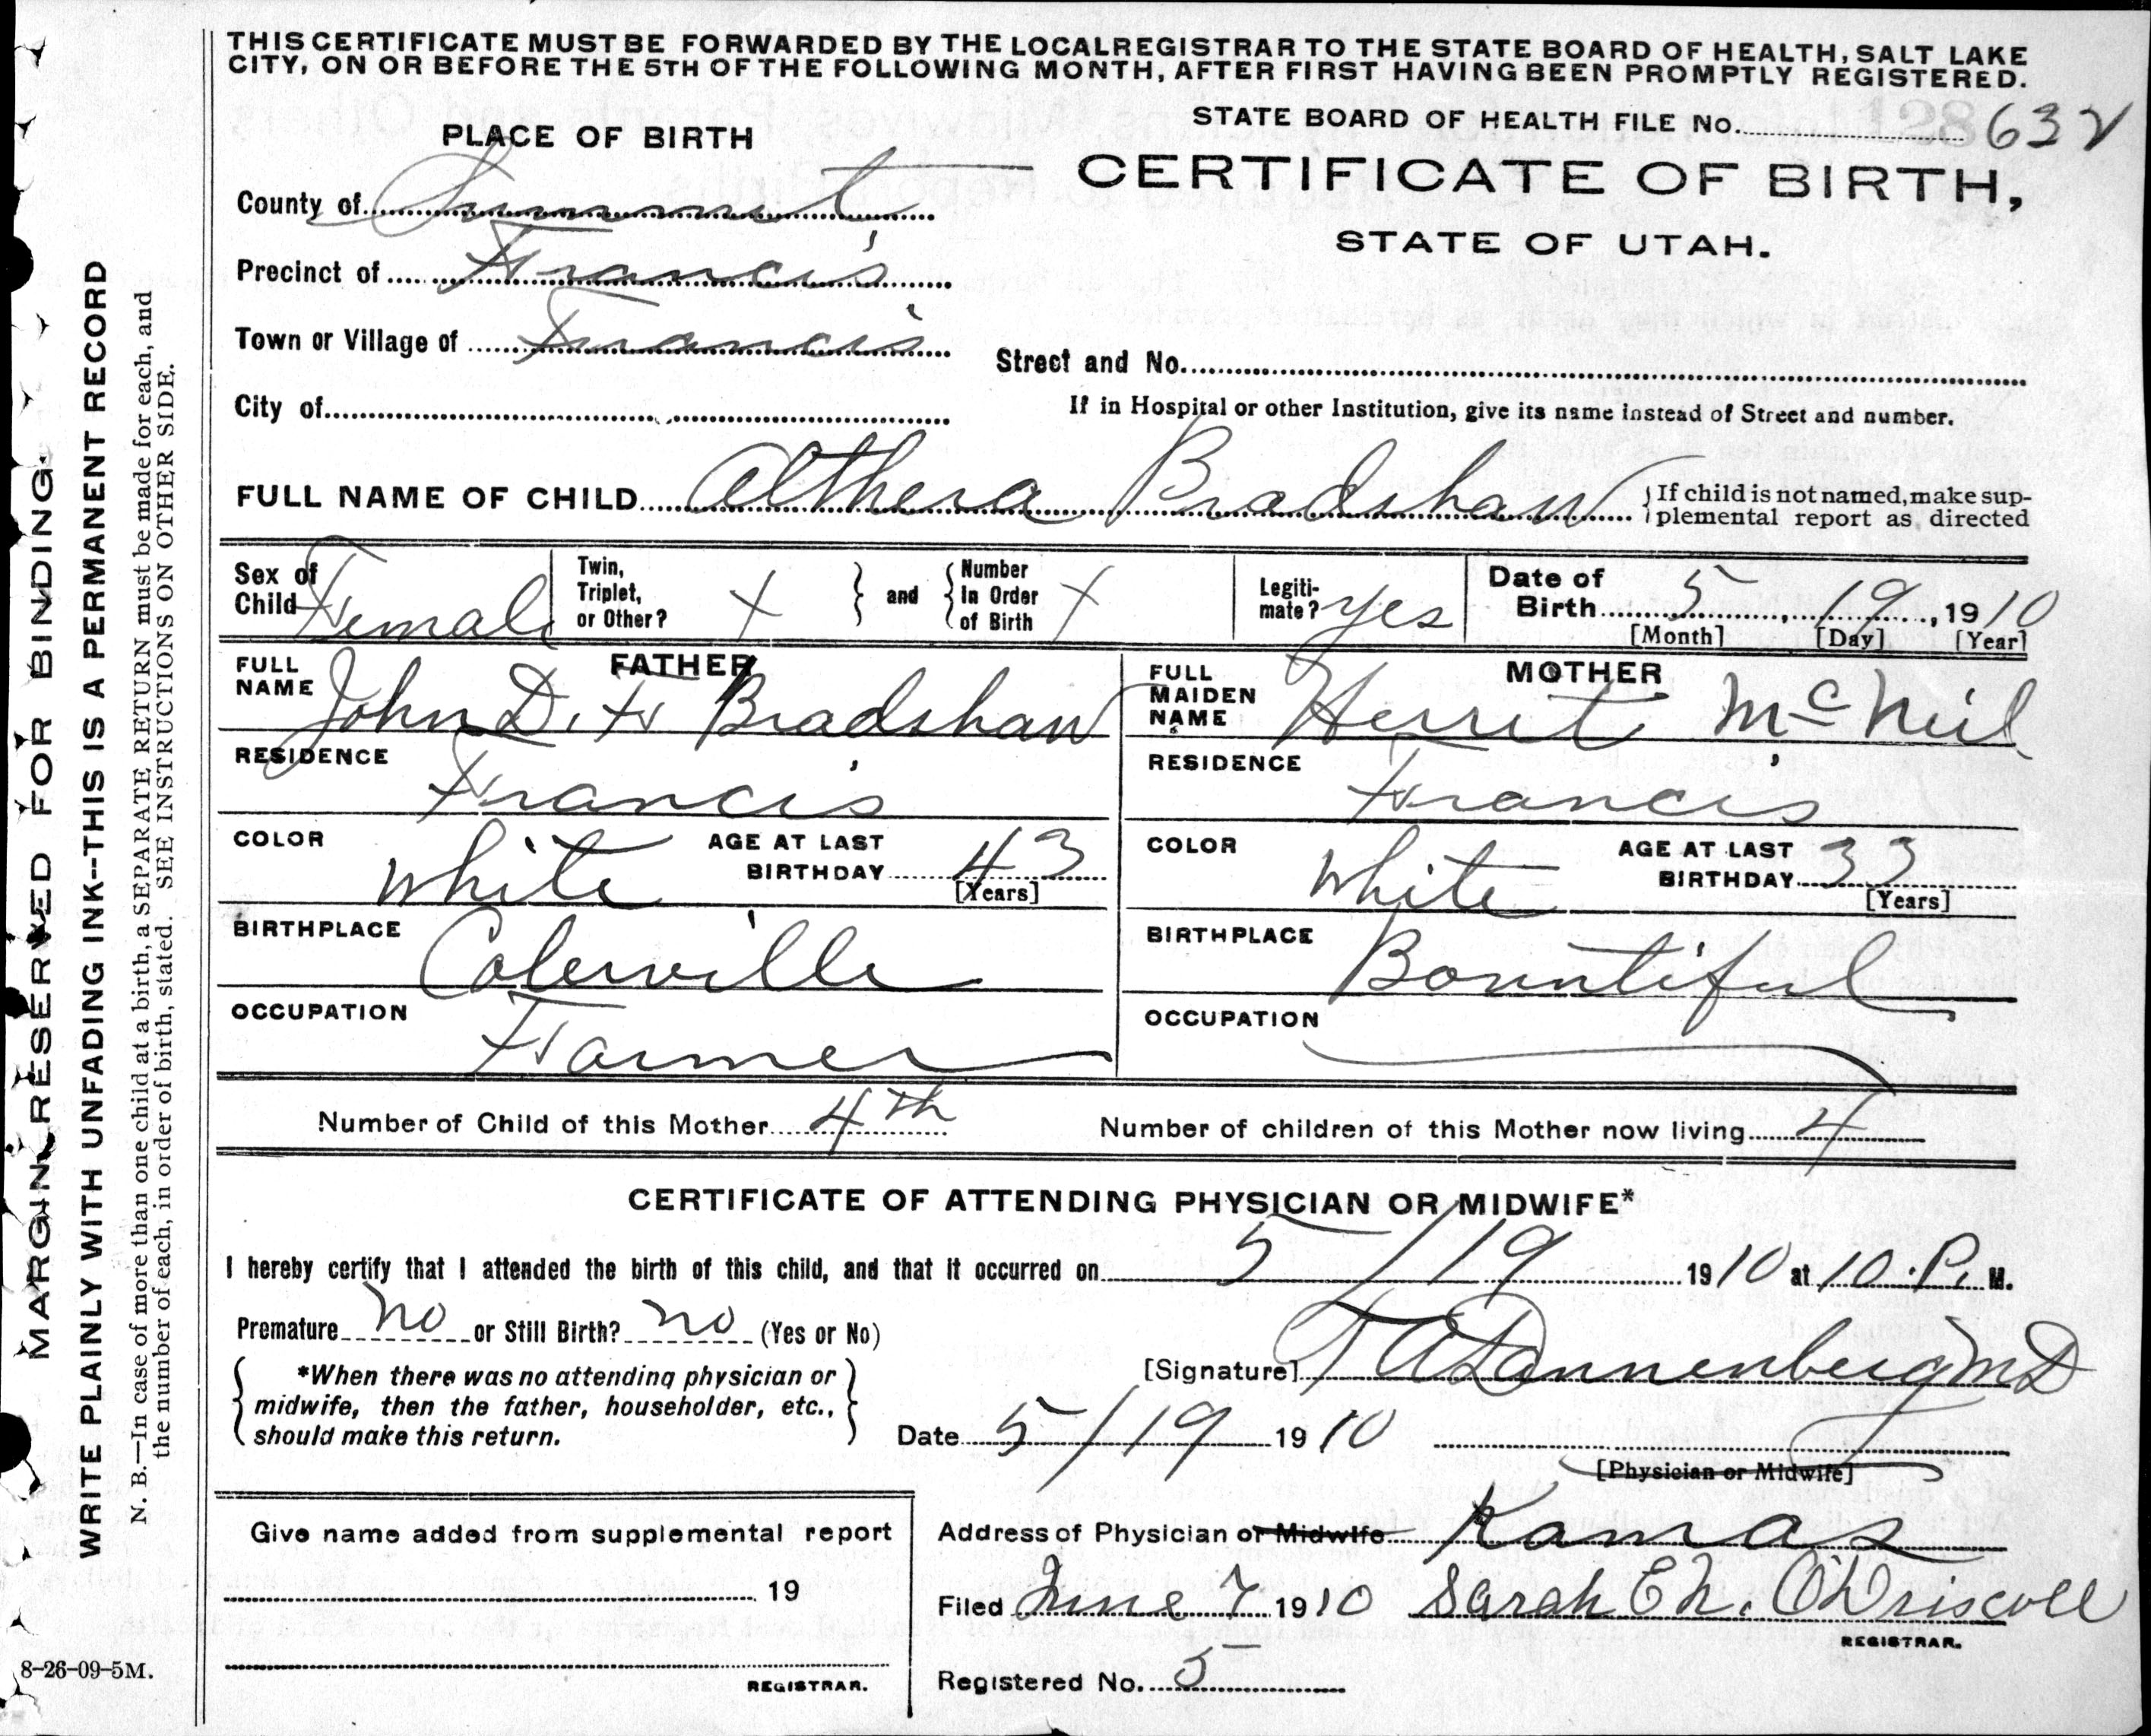 THIS CERTIFICATE MUST BE FORWARDED BY THE LOCAL REGISTRAR TO THE STATE BOARD OF HEALTH, SALT LAKE
CITY, ON OR BEFORE THE 5TH OF THE FOLLOWING MONTH, AFTER FIRST HAVING BEEN PROMPTLY REGISTERED.
STATE BOARD OF HEALTH FILE No. 632
PLACE OF BIRTH
CERTIFICATE OF BIRTH,
STATE OF UTAH.
County of Summit
Precinct of Francis
Town or Village of Francis
Street and No.
City of
If in Hospital or other Institution, give its name instead of Street and number.
FULL NAME OF CHILD Althera Bradshaw { If child is not named, make sup-
plemental report as directed
Sex of Child Female
Twin, Triplet, or Other? X } and { Number In Order of Birth X
Legiti-mate? Yes
Date of Birth 5, 19, 1910
[Month] [Day] [Year]
FATHER
FULL NAME John D. F Bradshaw
RESIDENCE Francis
COLOR White AGE AT LAST BIRTHDAY 43
[Years]
BIRTHPLACE Colerville
OCCUPATION Farmer
MOTHER
FULL MAIDEN NAME Herrit McNeil
RESIDENCE Francis
COLOR White AGE AT LAST BIRTHDAY 33
[Years]
BIRTHPLACE Bountiful
OCCUPATION
Number of Child of this Mother 4th Number of children of this Mother now living 4
CERTIFICATE OF ATTENDING PHYSICIAN OR MIDWIFE*
I hereby certify that I attended the birth of this child, and that it occurred on 5/19 1910 at 10. P. M.
Premature no or Still Birth? no (Yes or No)
*When there was no attending physician or
midwife, then the father, householder, etc.,
should make this return.
[Signature] T A Dannenberg MD
Date 5/19 1910
[Physician or Midwife]
Give name added from supplemental report
19
REGISTRAR.
Address of Physician or Midwife Kamas
Filed June 7 1910 Sarah E N. O'Driscoll
REGISTRAR.
Registered No. 5
8-26-09-5M.
MARGIN RESERVED FOR BINDING.
WRITE PLAINLY WITH UNFADING INK--THIS IS A PERMANENT RECORD
N. B.—In case of more than one child at a birth, a SEPARATE RETURN must be made for each, and
the number of each, in order of birth, stated. SEE INSTRUCTIONS ON OTHER SIDE.